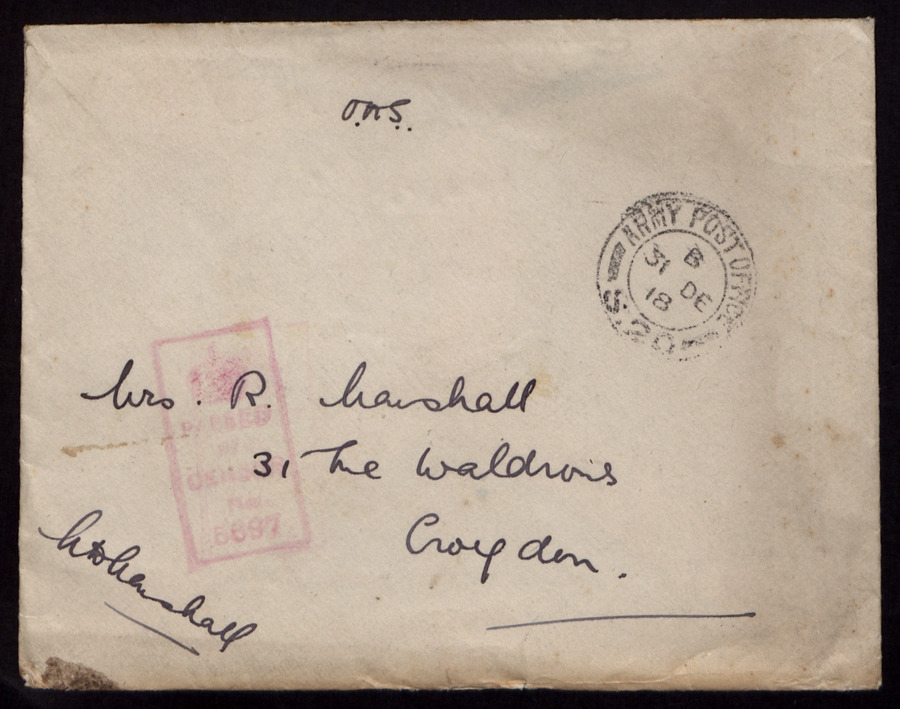 O.A.S.
ARMY POST OFFICE
B
31 DE
18
S.20
Mrs. R. Marshall
31 The Waldrons
Croydon.
PASSED
BY
CENSOR
No.
Marshall